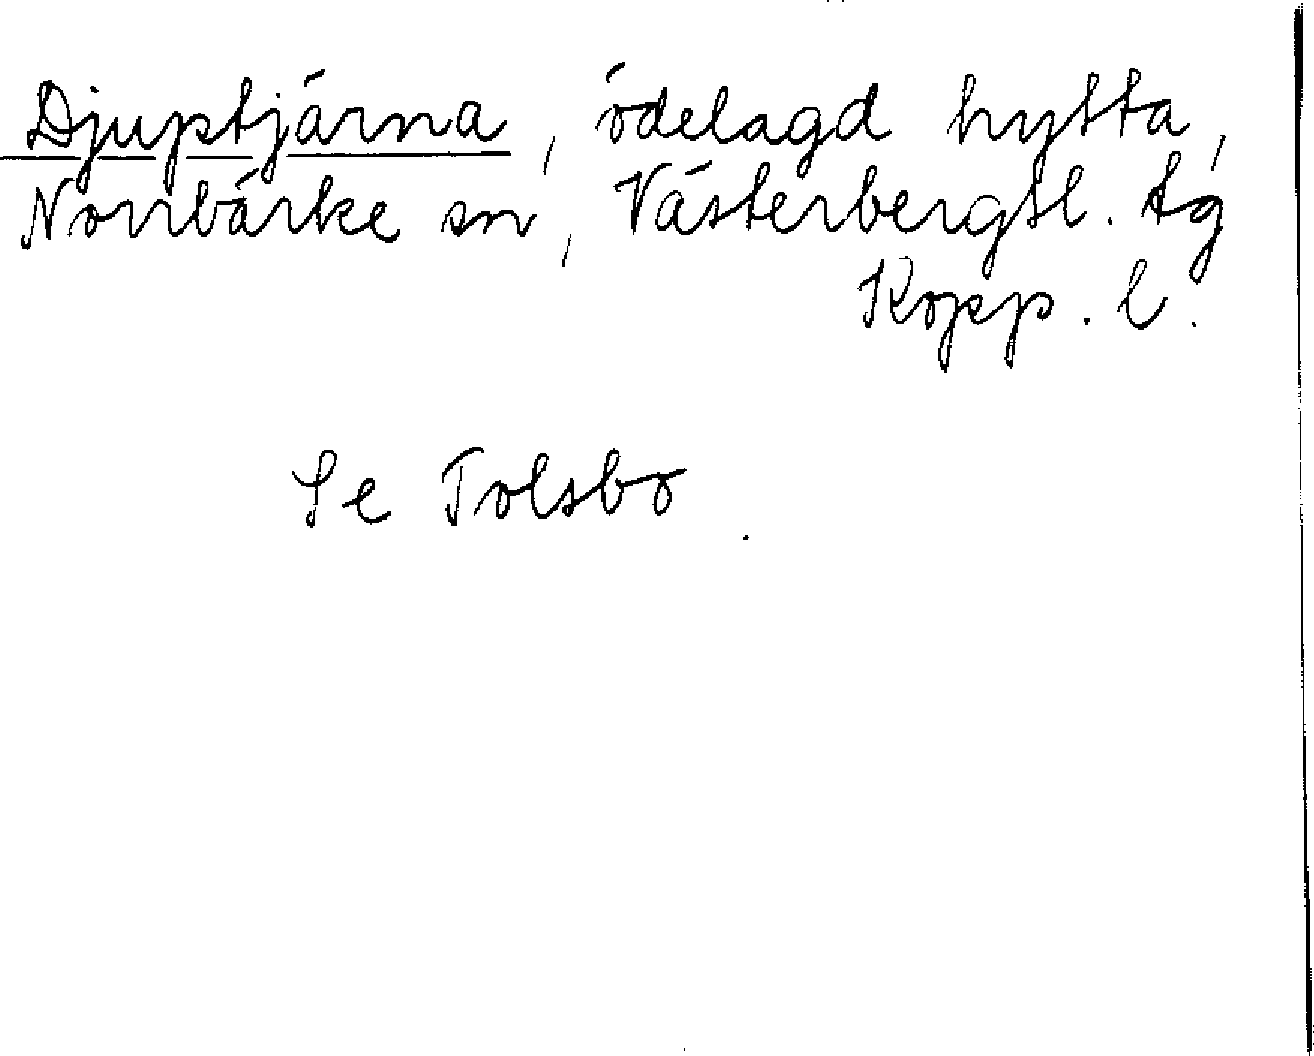 Djuptjärna, ödelagd hytta,
Norrbärke sn, Västerbergsl. tg
Kopp. l.
Se Tolsbo.